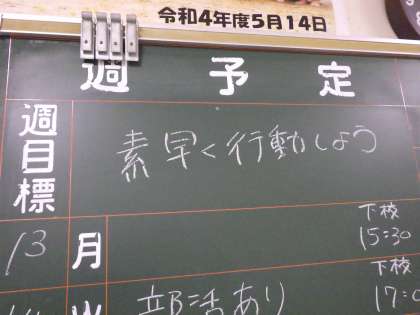 令和4年度5月14日
週予定
週目標
素早く行動しよう
13 月 下校 15:30
部活あり 下校